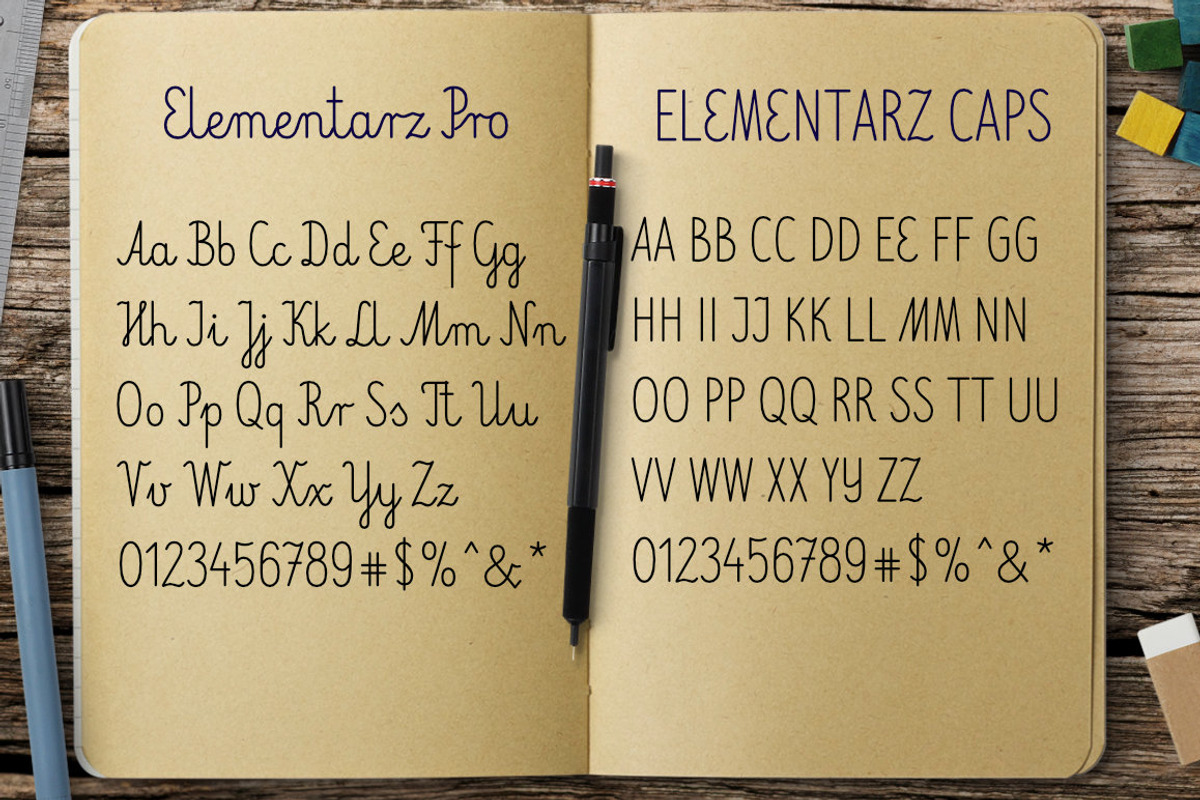 Elementarz Pro
Aa Bb Cc Dd Ee Ff Gg
Hh Ii Jj Kk Ll Mm Nn
Oo Pp Qq Rr Ss Tt Uu
Vv Ww Xx Yy Zz
0123456789#$%^&*
ELEMENTARZ CAPS
AA BB CC DD EE FF GG
HH II JJ KK LL MM NN
OO PP QQ RR SS TT UU
VV WW XX YY ZZ
0123456789#$%^&*